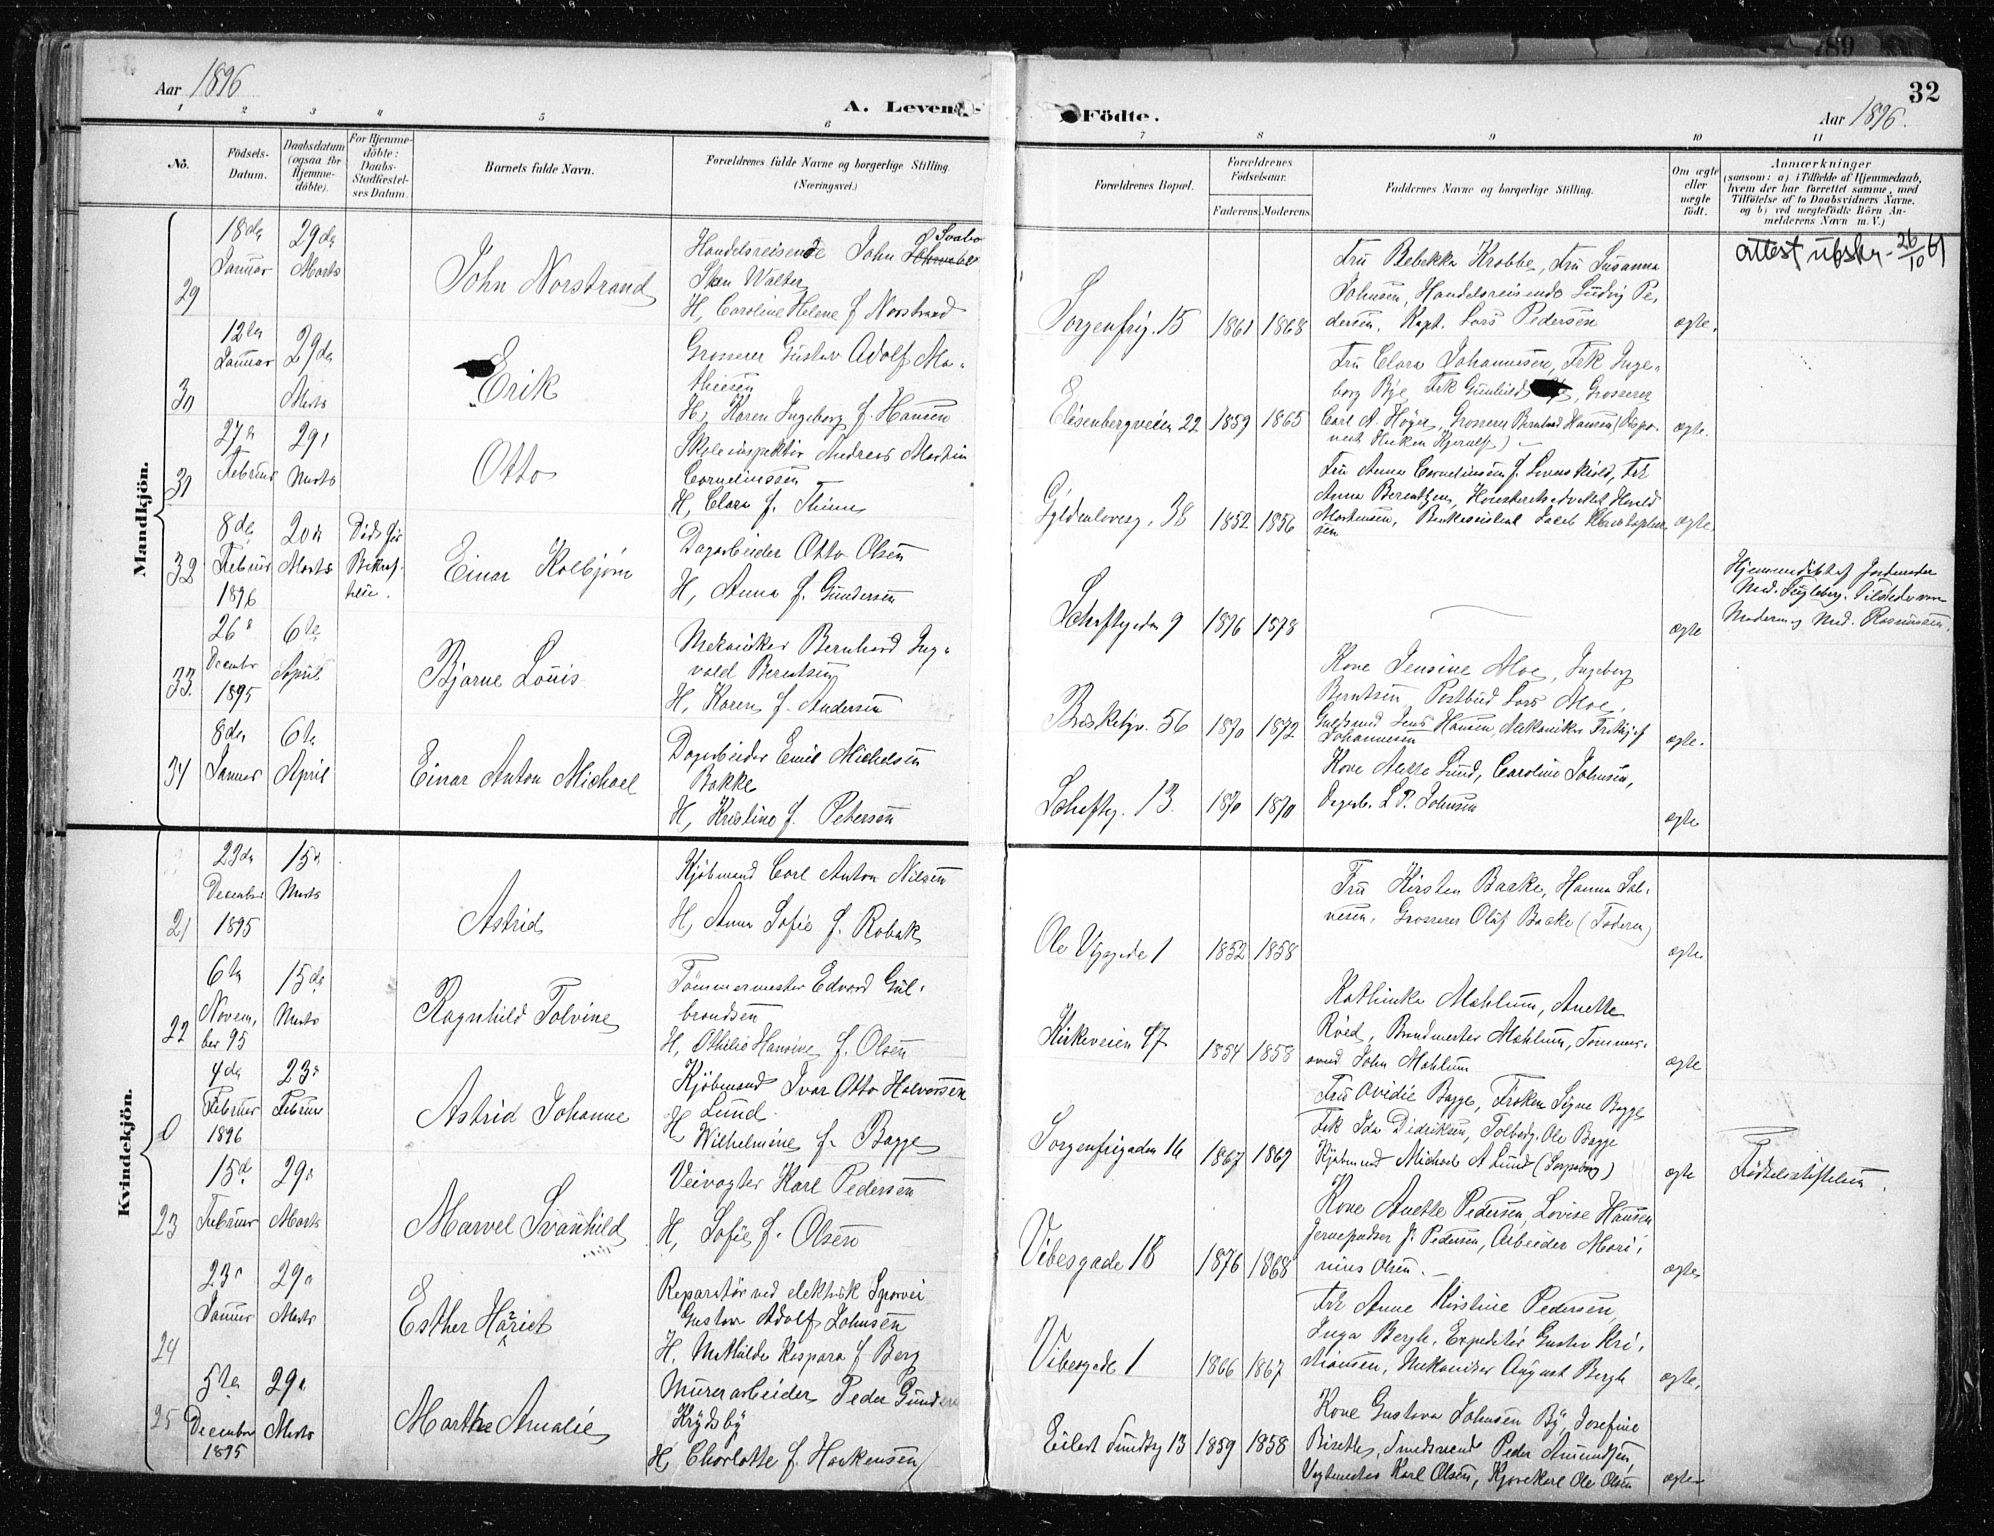 Aar 1896
A. Levende
Födte.
Aar 1896.
32
1 2 3 4 5 6 7 8 9 10 11
Nö.
Födsels-
Datum.
Daabsdatum
(ogsaa for
Hjemme-
döbte).
For Hjemme-
döbte:
Daabs-
Stadfæstel-
ses Datum.
Barnets fulde Navn.
Forældrenes fulde Navne og borgerlige Stilling.
(Næringsvei.)
Forældrenes Bopæl.
Forældrenes
Födselsaar.
Faderens. Moderens.
Faddernes Navne og borgerlige Stilling.
Om ægte
eller
uægte
födt.
Anmærkninger
(saasom: a) i Tilfælde af Hjemmedaab,
hvem der har forrettet samme, med
Tilföielse af to Daabsvidners Navne.
og b) ved uægtefödte Börn An-
melderens Navn m. V.)
Mandkjön.
29
18de
Januar
29de
Marts
John Norstrand
Handelsreisende John
Sven Walter
H, Caroline Helene f Norstrand
Sorgenfrig. 15
1861
1868
Fru Bebekka Krabbe, Fru Susanna
Johnsen, Handelsreisende Ludvig Pe-
dersen, Kapt. Lars Pedersen
ægte.
attest utskr. 26/10 61
30
12te
Januar
29de
Marts
Erik
Grosserer Gustav Adolf Ma-
thiesen
H, Karen Ingeborg f. Hansen
Elisenbergveien 22
1859
1865
Fru Clara Johannesen, Frk Inge-
borg Bye Frk Gunhild Grosserer
Carl A. Høyer, Grosserer Bernhard Hansen
ægte.
31
27de
Februar
29de
Marts
Otto
Skoleinspektør Andreas Martin
Corneliussen
H, Clara f. Thinn
Gyldenlovesg. 38
1852
1856
Fru Anna Corneliussen f. Lovenskiold, Frk
Anna Berentzen,
Mortensen, Jacob
ægte
32
8de
Februar
1896
20de
Marts
Einar Kolbjørn
Dagarbeider Otto Olsen
H, Anna f. Gundersen
Schaftegaden 9
1876
1878
ægte
Hjemmedøbt af Jordmoder
33
26de
December
1895
6te
April
Bjarne Louis
Mekaniker Bernhard Ing-
vald Berntsen
H, Karen f. Andersen
Briskebyv. 56
1870
1872
Kone Jensine Moe, Ingeborg
Berntsen Postbud Lars Moe,
Gulsmed Jens Hansen, Mekaniker Frithjof
Johannesen
ægte.
34
8de
Januar
6te
April
Einar Anton Michael
Dagarbeider Emil Michelsen
Bakke
H, Kristine f. Petersen
Schefteg. 13.
1870
1870
Kone Mette Lund, Caroline Johnsen,
Dagarb. L. P. Johnsen
ægte
Kvindekjön.
21
23de
December
1895
15de
Marts
Astrid
Kjøbmand Carl Anton Nilsen
H, Anna Sofie f. Robak
Ole Viggsgade 1
1852
1858
Fru Kirsten Baeke, Hanna Sal-
vesen, Grosserer Oluf Backe (Faderen)
ægte.
22
6te
Novem-
ber 95
15de
Marts
Ragnhild Tolvine
Tømmermester Edvard Gul-
brandsen
H, Othilie Hansine f. Olsen
Kirkeveien 47
1854
1858
Kathinka Mæhlum, Anette
Røed, Brandmester Mæhlum, Tømmer-
svend John Mæhlum
ægte
0
4de
Februar
1896
23de
Februar
Astrid Johanne
Kjøbmand Ivar Otto Halvorsen
Lund
H Wilhelmine f. Bagge
Sorgenfrigaden 16
1867
1869
Fru Ovidie Bagge, Frøken Signe Bagge
Frk Ida Didriksen, Tolbetj. Ole Bagge
Kjøbmand Michael A Lund (Sarpsborg)
ægte
Fødselsstiftelsen.
23
15de
Februar
29de
Marts
Marvel Svanhild
Veivogter Karl Pedersen
H, Sofie f. Olsen
Vibesgade 18
1876
1868
Kone Anette Pedersen, Lovise Hansen
J. Pedersen, Arbeider Mari-
nius Olsen.
ægte
24
23de
Januar
29de
Marts
Esther Hariet
Reparatør ved elektrisk Sporvei
Gustav Adolf Johnsen
H, Mathilde Kaspara f Berg
Vibesgade 1
1866
1867
Frk Anne Kirstine Pedersen,
Inga Bergh, Expeditør Gustav Kri-
stiansen, Mekaniker August Bergh
ægte.
25
5te
December
1895
29de
Marts
Marthe Amalie
Murerarbeider Peder Gunder
Krydsby
H, Charlotte f. Haakensen
Eilert Sundtsg 13
1859
1858
Kone Gustava Johnsen By, Josefine
Biseth, Smedsvend Peder Amundsen,
Vagtmester Karl Olsen, Kjørekarl Ole Olsen
ægte